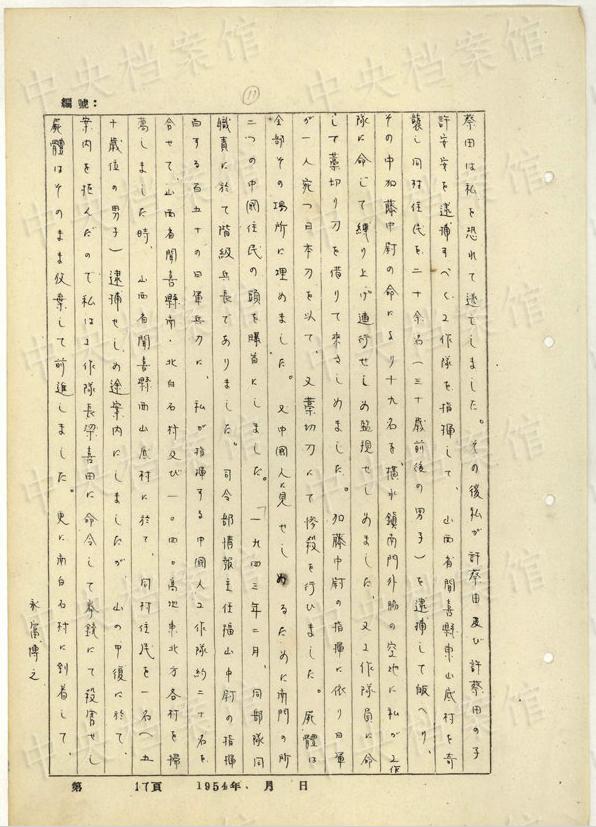 編號:
(11)
蔡田は私を恐れて逃亡しました。その後私が許蔡田及び許蔡田の子
許安安を逮捕すべく工作隊を指揮して、山西省聞喜縣東山底村を奇
襲し同村住民を二十余名(三十歳前後の男子)を逮捕して帰へり、
その中加藤中尉の命により十九名を橫水鎮南門外脇の空地に私が工作
隊に命じて縛り上げ連行せしめ監視せしめました、又工作隊員に命
じて藁切り刀を借りて来さしめました。加藤中尉の指揮に依り日軍
が一人宛つ日本刀を以て、又藁切刀にて惨殺を行ひました。屍體は
全部その場所に埋めました。又中國人に見せしめるために南門の所
二つの中國住民の頭を曝首にしました。「一九四三年二月、同部隊同
職責に於て階級兵長でありました。司令部情報主任福山中尉の指揮
する百五十の日軍兵力に、私が指揮する中國人工作隊約二十名を
合せて、山西省聞喜縣南・北白石村及び一〇四〇高地東北方各村を掃
蕩しました時、山西省聞喜縣西山底村に於て、同村住民を一名(五
十歳位の男子)逮捕せしめ途案内にしましたが、山の中復に於て、
案内を拒んだので私は工作隊長梁喜田に命令して拳銃にて殺害せし
屍體はそのまま伇棄して前進しました。更に南白石村に到着して、
永富博之
第 17頁 1954年 月 日
中央档案馆